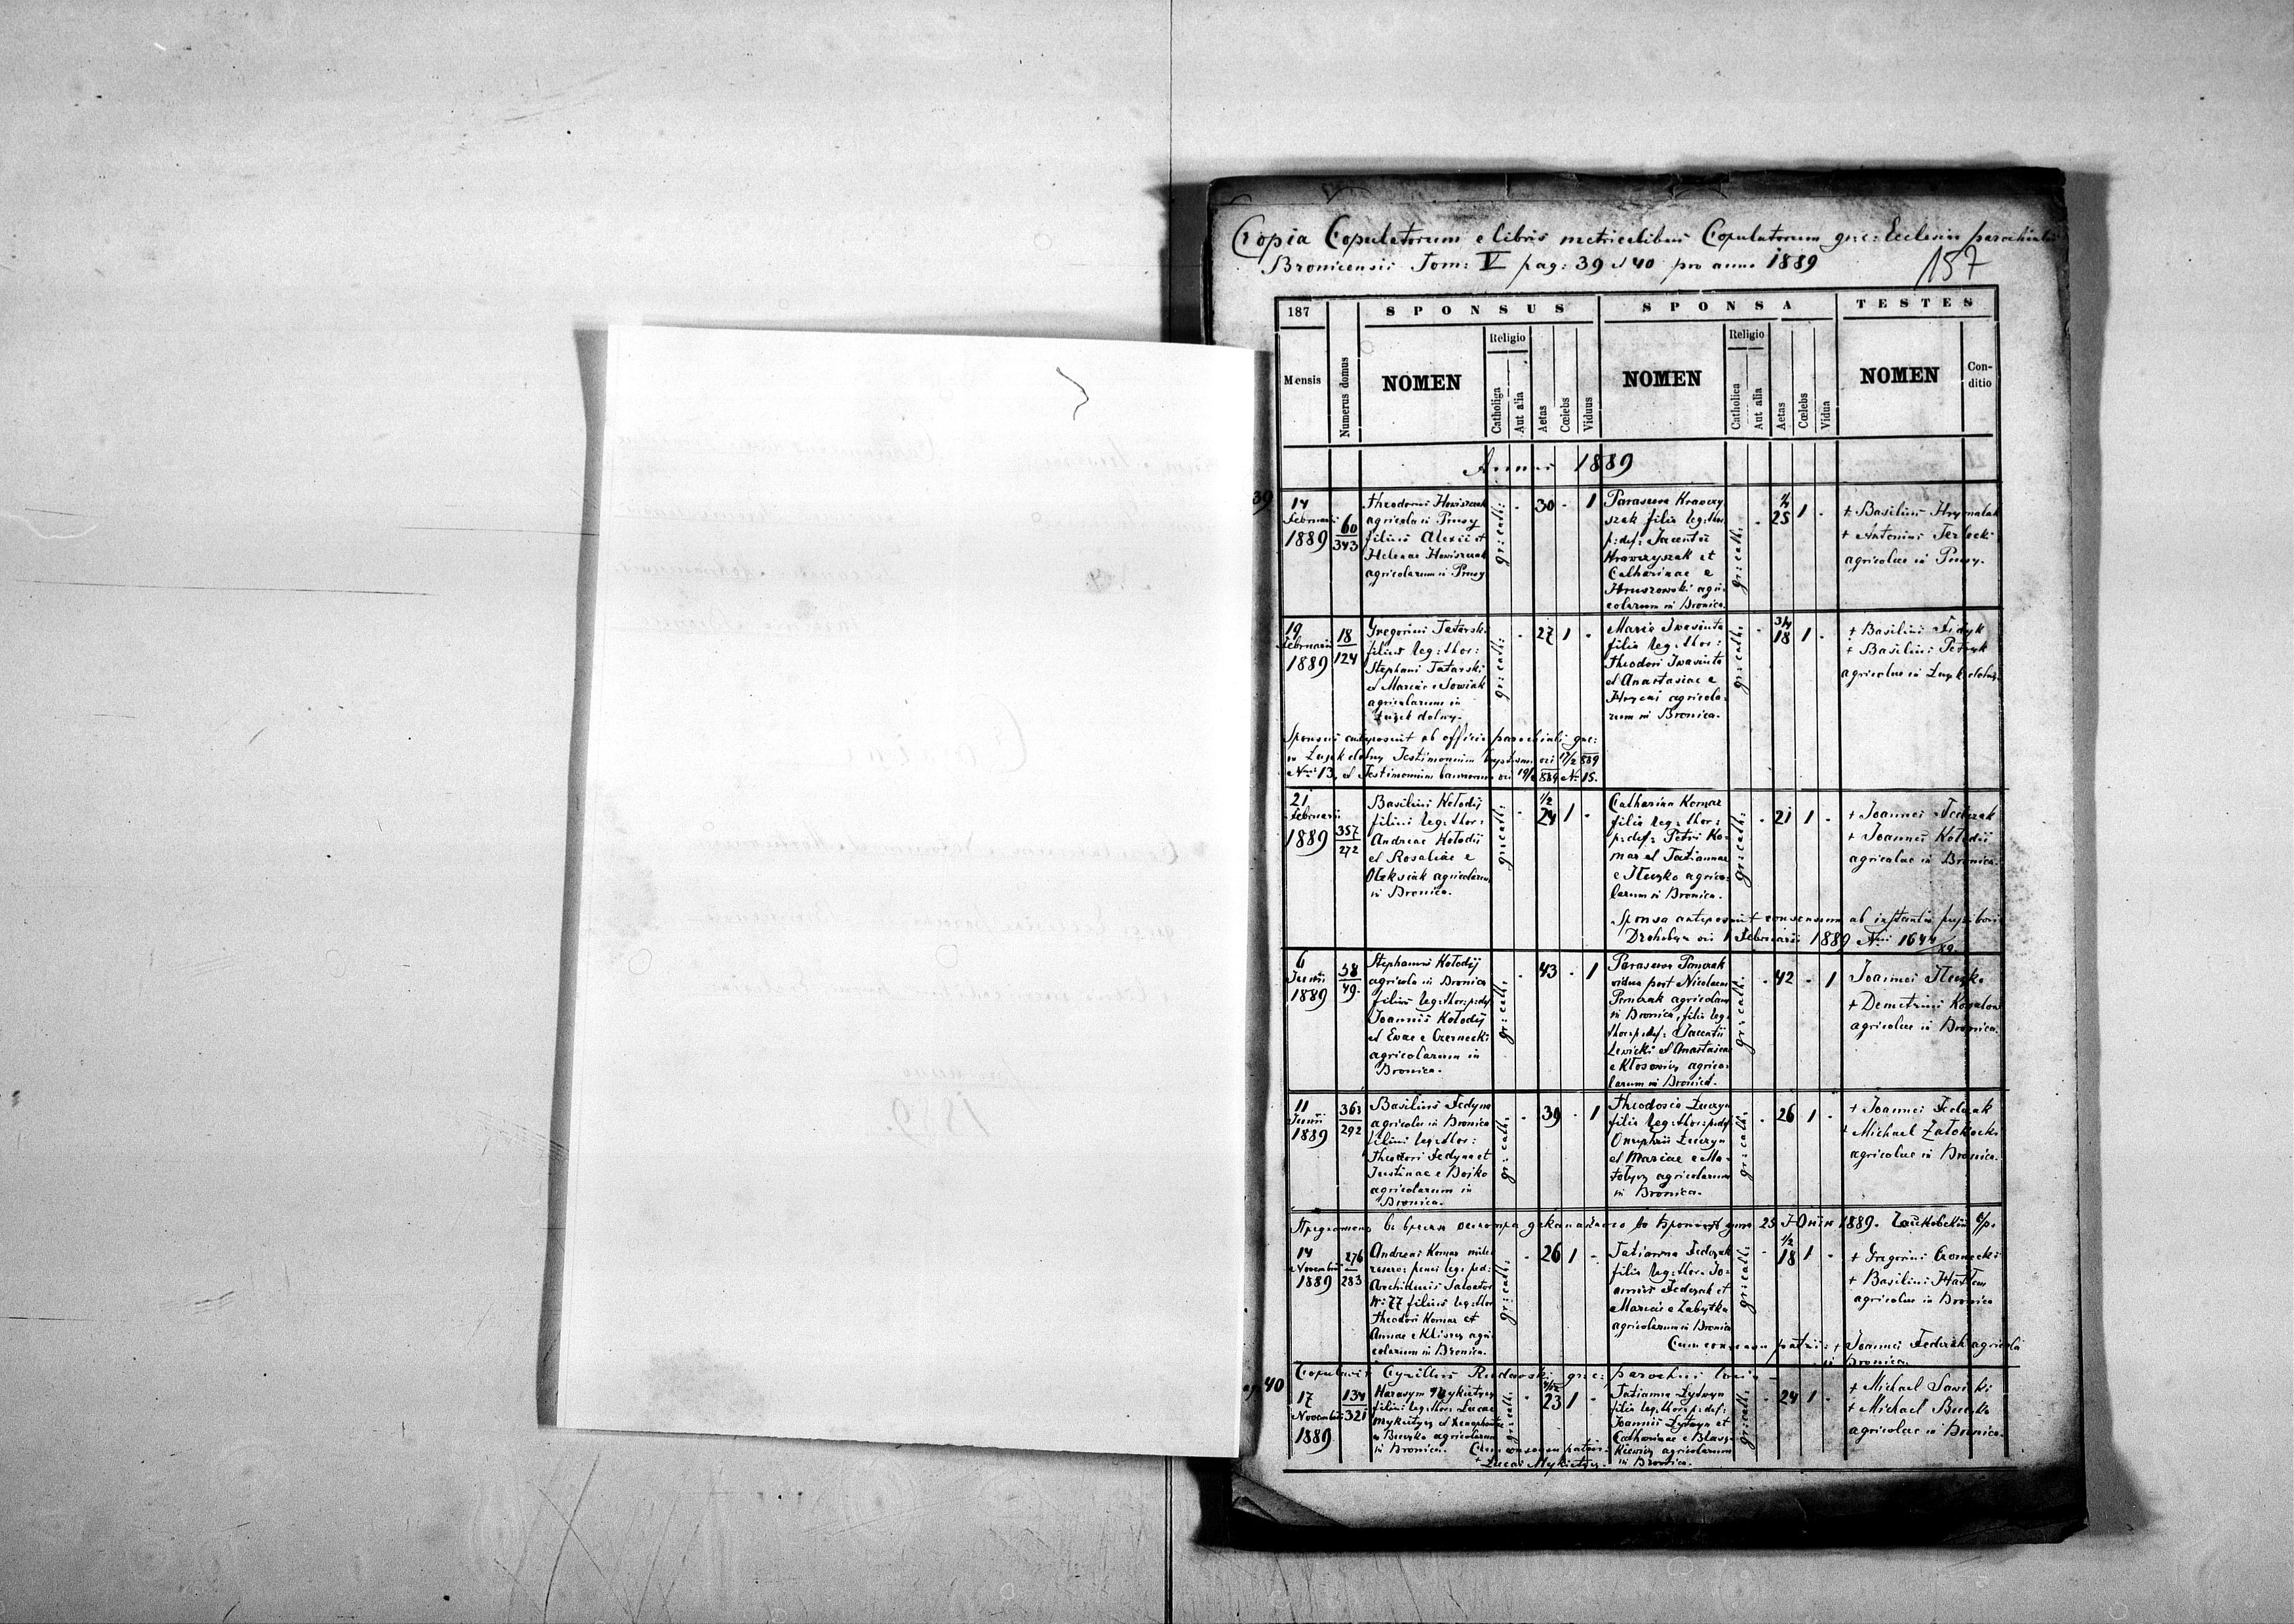 Copia Copulatorum e libris metricalibus Copulatorum gr: c: Ecclesiae parochialis
Bronicensis Tom: V pag: 39 et 40 pro anno 1889
157
187
SPONSUS
SPONSA
TESTES
Mensis
Numerus domus
NOMEN
Religio
Catholica
Aut alia
Aetas
Cœlebs
Viduus
NOMEN
Religio
Catholica
Aut alia
Aetas
Cœlebs
Vidua
NOMEN
Con-
ditio
Annus 1889
39
14
Februarii
1889
60
343
Theodorus
agricola in Prusy
filius Alexii et
Helenae
agricolarum in Prusy
gr: cath:
30
1
Parasceva Krawczy
szak filia leg: thor:
p: def: Jacentii
Krawczyszak et
Catharinae e
Hruszowski agri-
colarum in Bronica
gr: cath:
25
1
+ Basilius Hrymalak
+ Antonius Terlecki
agricolae in Prusy.
19
Februarii
1889
18
124
Gregorius Tatarski
filius leg: thor:
Stephani Tatarski
et Mariae e Sowiak
agricolarum in
Łużek dolny.
gr: cath:
27
1
Maria Iwasiuta
filia leg: thor:
Theodori Iwasiuta
et Anastasiae e
agricola-
rum in Bronica.
gr: cath:
3/4
18
1
+ Basilius Fedyk
+ Basilius Petryk
agricolae in Łużek dolny.
Sponsus anteposuit ab officio parochiali gr: c:
in Łużek dolny Testimonium
Nrus 13, et Testimonium bannorum 889 N: 15.
21
Februarii
1889
357
272
Basilius Kołodij
filius leg: thor:
Andreae Kołodij
et Rosaliae e
Oleksiak agricolarum
in Bronica.
gr: cath:
1/2
24
1
Catharina Komar
filia leg: thor:
p: def: Petri Ko-
mar et Tatiannae
e Ilczyko agrico-
larum in Bronica.
gr: cath:
21
1
+ Joannes Federak
+ Joannes Kołodij
agricolae in Bronica.
Sponsa anteposuit consensum ab instantia
Drohobycz 1 Februarii 1889 Nrus 1644/89.
6
Junii
1889
58
49.
Stephanus Kołodij
agricola in Bronica
filius leg: thor: p: def:
Joannis Kołodij
et Evae e Czernecki
agricolarum in
Bronica.
gr: cath:
43
1
Parasceva
vidua post Nicolaum
agricolam
in Bronica, filia leg:
thor: p: def: Jacentii
Lewicki et Anastasiae
e Kłosowicz agrico-
larum in Bronica.
gr: cath:
42
1
Joannes
+ Demetrius
agricolae in Bronica.
11
Junii
1889
363
292
Basilius Fedyna
agricola in Bronica
filius leg: thor:
Theodori Fedyna et
Justinae e Bojko
agricolarum in
Bronica.
gr: cath:
39
1
Theodosia Łuczyn
filia leg: thor: p: def:
Onuphrii Łuczyn
et Mariae e Ma-
agricolarum
in Bronica.
gr: cath:
26
1
+ Joannes Federak
+ Michael Załokocki
agricolae in Bronica.
во время осмотра деканального во Броници дня 25 Юнія 1889.
14
Novembris
1889
276
283
Andreas Komar miles
reserv: penes leg: ped:
Archiducis Salvator
N: 77 filius leg: thor:
Theodori Komar et
Annae e agri-
colarum in Bronica.
gr: cath:
26
1
Tatianna Federak
filia leg: thor: Jo-
annis Federak et
Mariae e Zabytka
agricolarum in Bronica
gr: cath:
1/2
18
1
+ Gregorius
+ Basilius
agricolae in Bronica
Cum consensu patris: + Joannes Federak agricola
in Bronica.
Copulavit Cyrillus Rudawski gr: c: parochus loci
40
17
Novembris
1889
134
321
Harasym Mykietyn
filius leg: thor: Lucae
Mykietyn et
e agricolarum
in Bronica.
gr: cath:
23
1
Tatianna Łytwyn
filia leg: thor: p: def:
Joannis Łytwyn et
Catharinae e Błasz-
kiewicz agricolarum
in Bronica.
gr: cath:
24
1
+ Michael Sawicki
+ Michael
agricolae in Bronica.
Cum consensu patris:
+ Lucas Mykietyn.